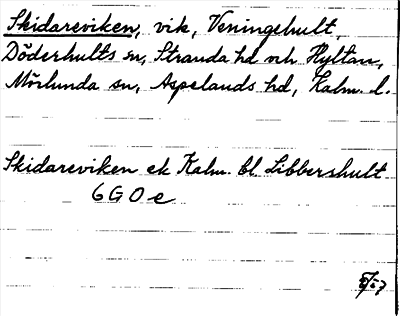 Skidareviken, vik, Veningehult,
Döderhults sn, Stranda hd och Hyltan,
Mörlunda sn, Aspelands hd, Kalm. l.
Skidareviken ek Kalm. bl. Libbershult
6 G 0 e